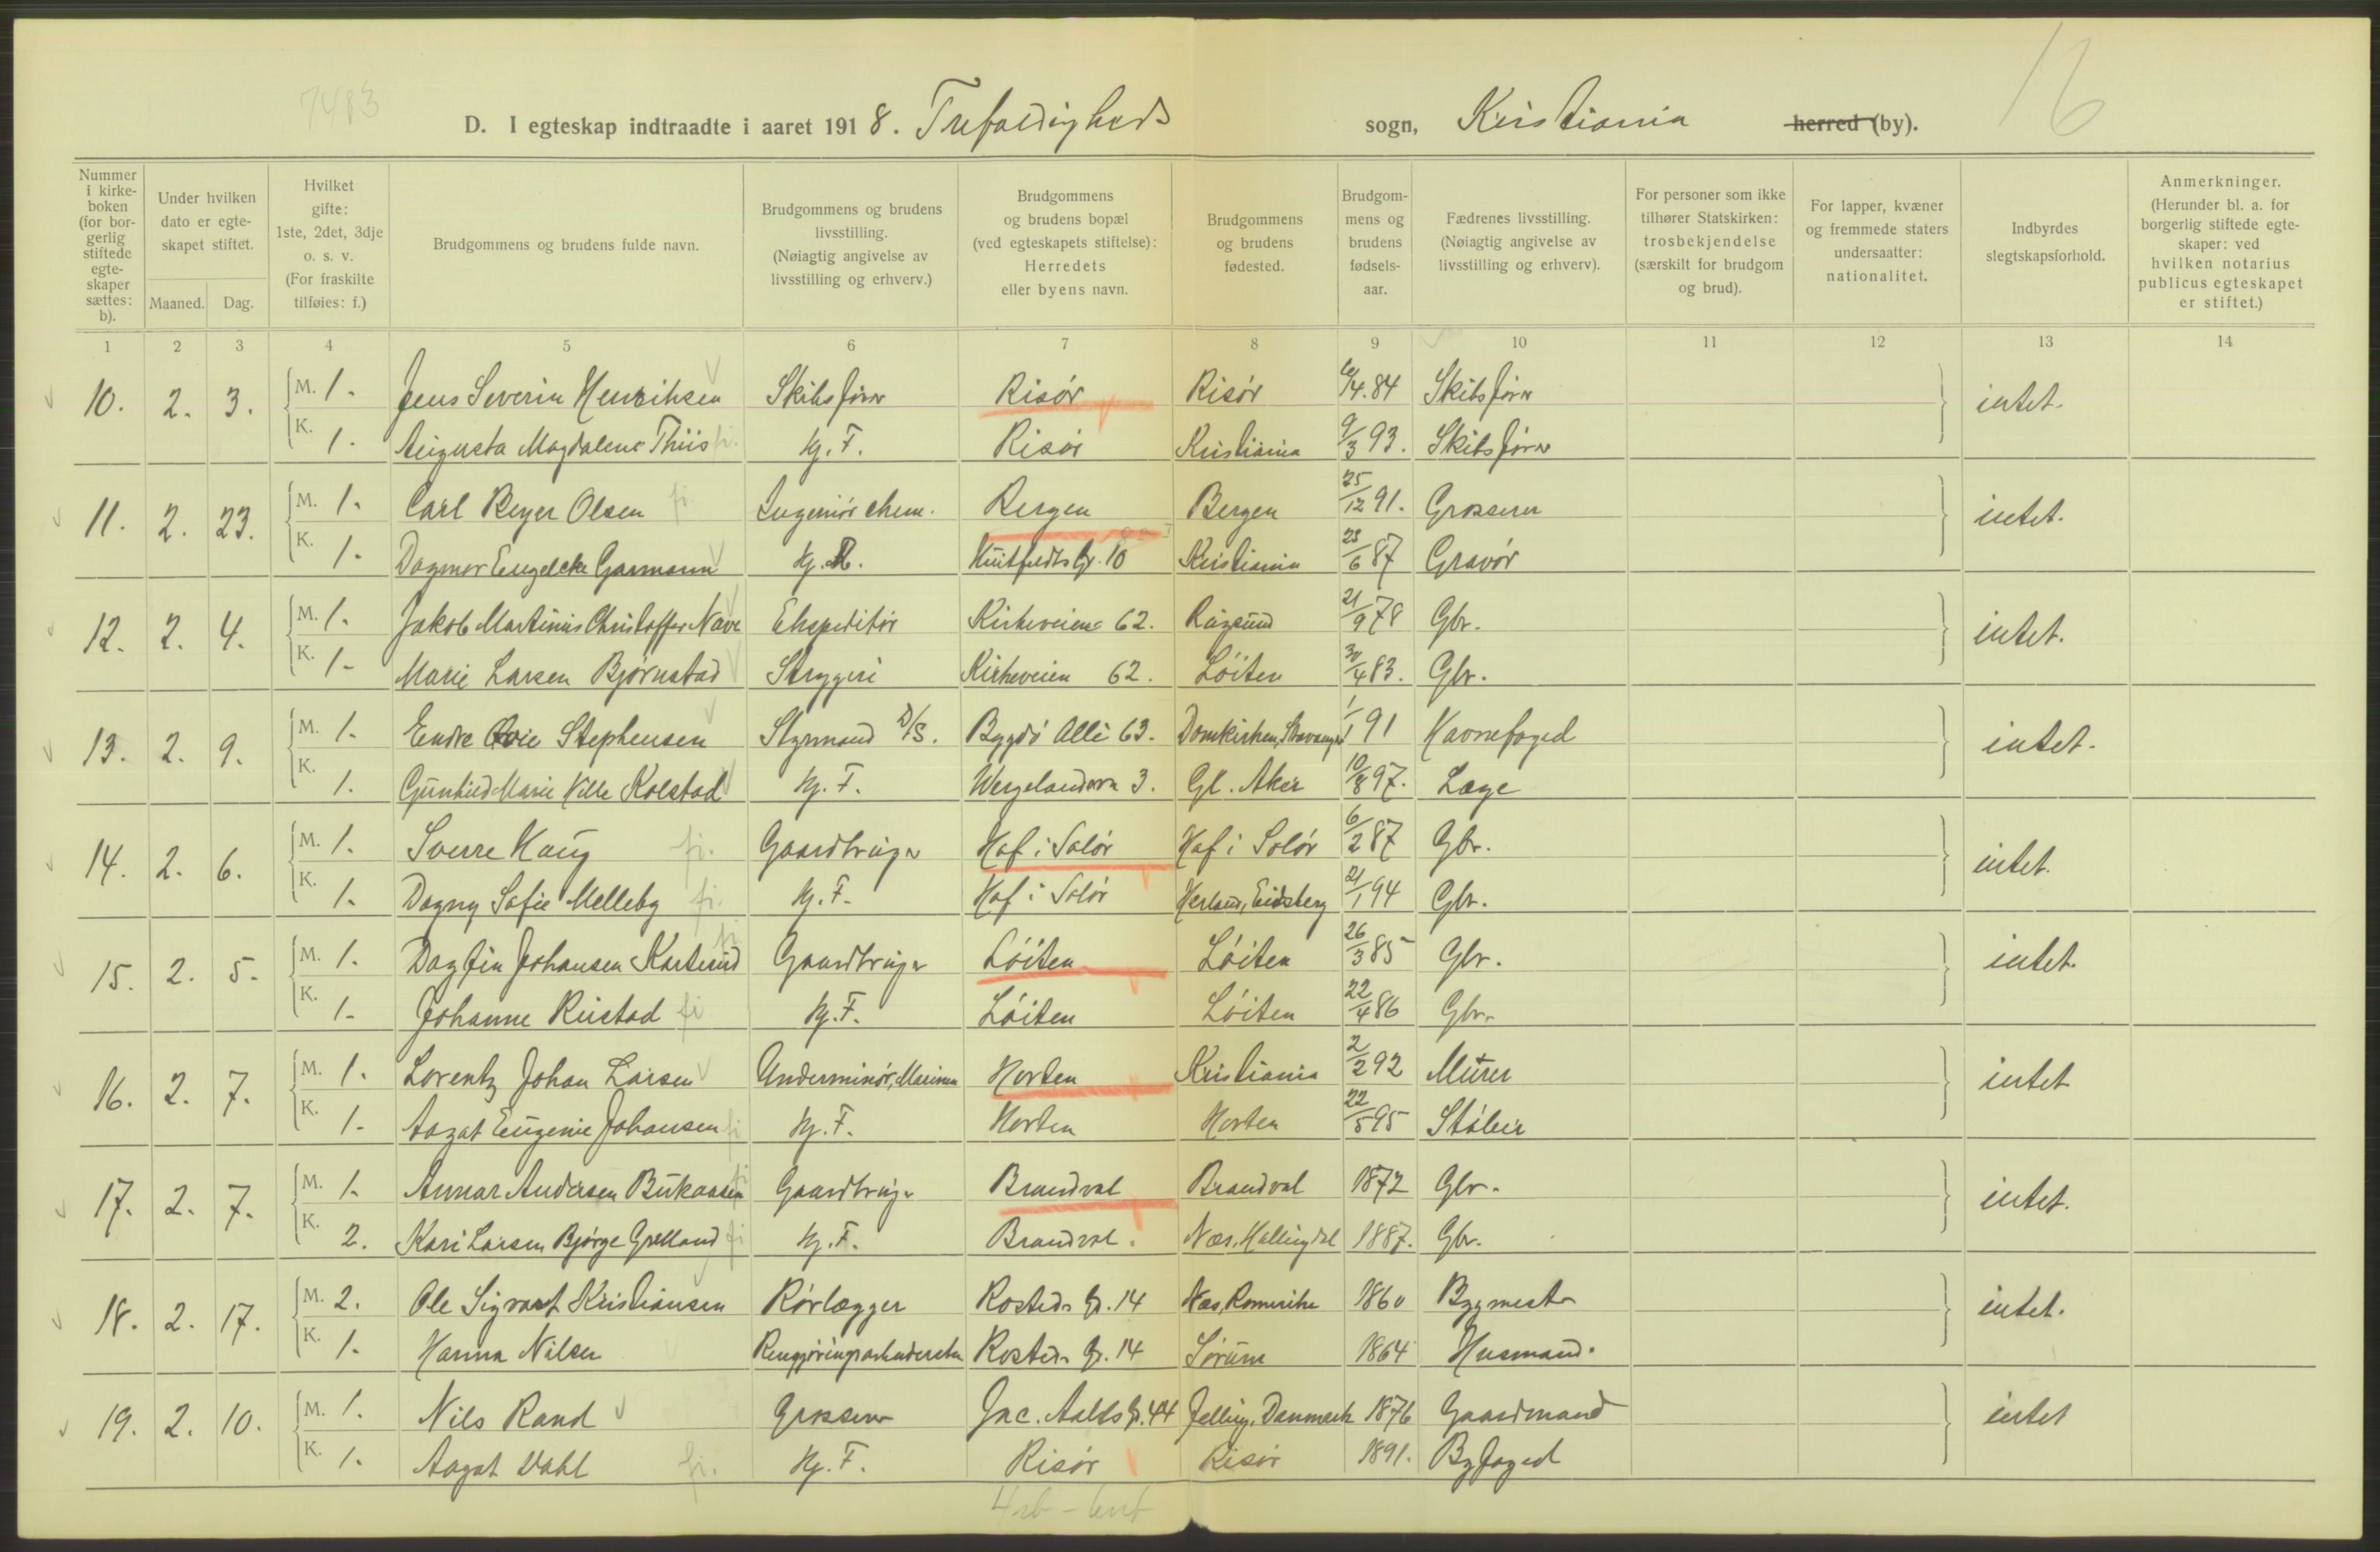 16
D. I egteskap indtraadte i aaret 1918. Trefoldigheds sogn, Kristiania herred (by).
Nummer i kirkeboken (for borgerlig stiftede egteskaper sættes: b).
Under hvilken dato er egteskapet stiftet.
Maaned. Dag.
Hvilket gifte: 1ste, 2det, 3dje o. s. v. (For fraskilte tilføies: f.)
Brudgommens og brudens fulde navn.
Brudgommens og brudens livsstilling. (Nøiagtig angivelse av livsstilling og erhverv.)
Brudgommens og brudens bopæl (ved egteskapets stiftelse): Herredets eller byens navn.
Brudgommens og brudens fødested.
Brudgommens og brudens fødselsaar.
Fædrenes livsstilling. (Nøiagtig angivelse av livsstilling og erhverv).
For personer som ikke tilhører Statskirken: trosbekjendelse (særskilt for brudgom og brud).
For lapper, kvæner og fremmede staters undersaatter: nationalitet.
Indbyrdes slegtskapsforhold.
Anmerkninger. (Herunder bl. a. for borgerlig stiftede egteskaper: ved hvilken notarius publicus egteskapet er stiftet.)
1 2 3 4 5 6 7 8 9 10 11 12 13 14
10. 2. 3. M. 1. Jens Severin Henriksen Skibsfører Risør Risør /4.84 Skibsfører intet.
K. 1. Augusta Magdalene Thiis Hj. F. Risør Kristiania 9/3 93. Skibsfører
11. 2. 23. M. 1. Carl Beyer Olsen Ingeniør chem. Bergen Bergen 25/12 91. Grosserer intet.
K. 1. Dagmar Engelcke Garmann Hj. Huitfeldts G. 10 Kristiania 23/6 87 Gravør
12. 2. 4. M. 1. Jakob Martinius Christoffer Nave Ekspeditør Kirkeveien 62. 21/9 78 Gbr. intet.
K. 1. Marie Larsen Bjørnstad Strygeri Kirkeveien 62. Løiten 30/4 83. Gbr.
13. 2. 9. M. 1. Endre Stephensen Styrmand D/S. Bygdø Allé 63. Domkirken, Stavanger 1/1 91 Havnefoged intet.
K. 1. Gunhild Marie Ville Kolstad Hj. F. Wergelandsvn 3. Gl. Aker 10/8 97. Læge
14. 2. 6. M. 1. Sverre Haug Gaardbruger Hof i Solør Hof i Solør 6/2 87 Gbr. intet.
K. 1. Dagny Sofie Melleby Hj. F. Hof i Solør Herland, Eidsberg 21/1 94 Gbr.
15. 2. 5. M. 1. Dagfin Johansen Karterud Gaardbruger Løiten Løiten 26/3 85 Gbr. intet.
K. 1. Johanne Rustad Hj. F. Løiten Løiten 22/4 86 Gbr.
16. 2. 7. M. 1. Lorentz Johan Larsen Underminør, Marinen Horten Kristiania 2/2 92 Murer intet
K. 1. Aagat Eugenie Johansen Hj. F. Horten Horten 22/5 95 Støber
17. 2. 7. M. 1. Annar Andersen Bukaasen Gaardbruger Brandval Brandval 1872 Gbr. intet.
K. 2. Kari Larsen Bjørge Grølland Hj. F. Brandval. Næs, Hallingdal 1887. Gbr.
18. 2. 17. M. 2. Ole Sigvart Kristiansen Rørlægger Rosteds G. 14 Næs, Romerike 1860 Bygmester intet.
K. 1. Hanna Nilsen Rengjøringsarbeiderske Rosteds G. 14 Sørum 1864 Husmand.
19. 2. 10. M. 1. Nils Rand Grosserer Jac. Aalls G. 44 Jelling, Danmark 1876 Gaardmand intet
K. 1. Aagot Dahl Hj. F. Risør Risør 1891. Byfoged